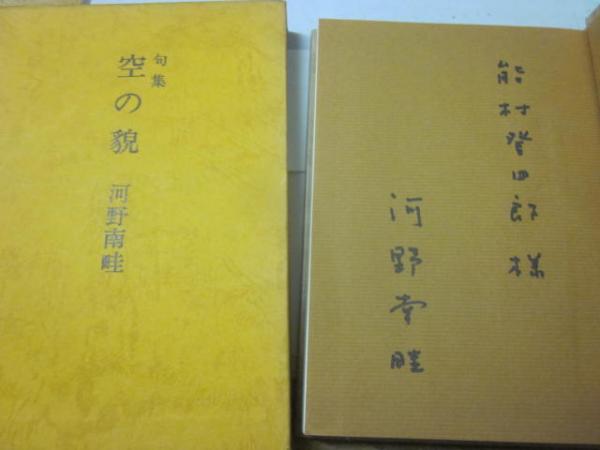 句集
空の貌
河野南畦
能村登四郎様
河野南畦